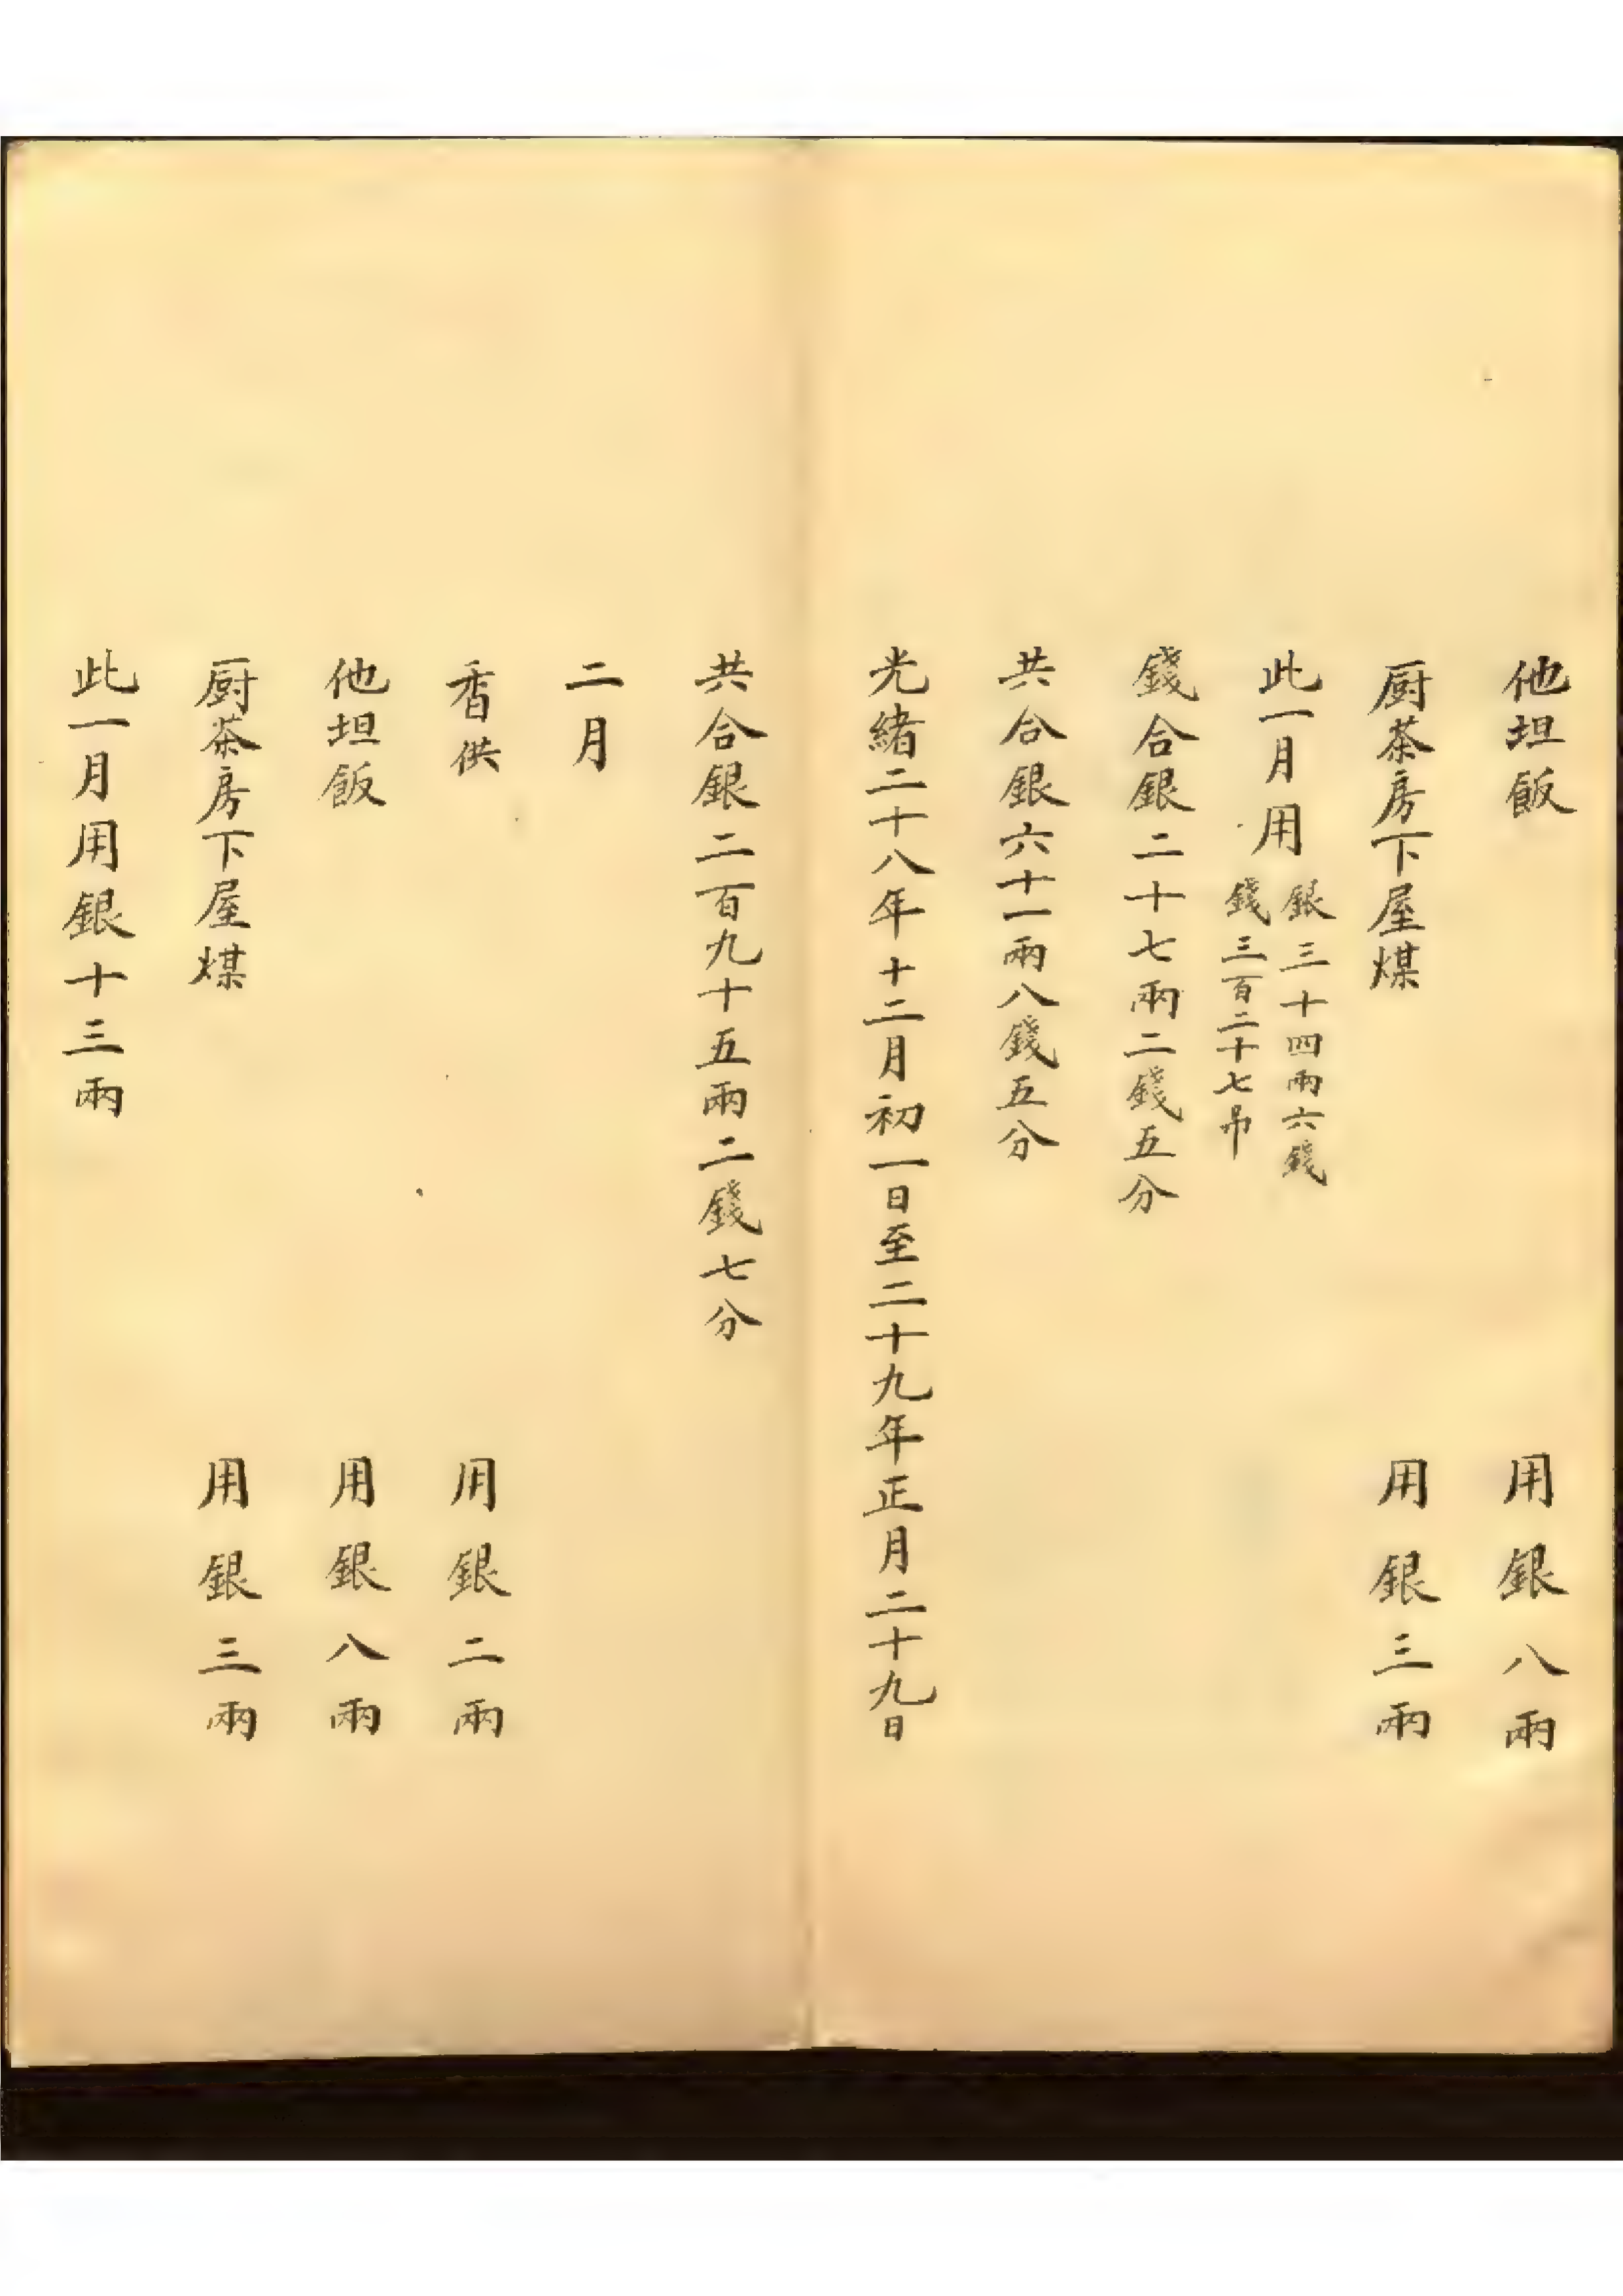 他坦飯 用銀八兩
厨茶房下屋煤 用銀三兩
此一月用銀三十四兩六錢
錢三百二十七吊
錢合銀二十七兩二錢五分
共合銀六十一兩八錢五分
光緒二十八年十二月初一日至二十九年正月二十九日
共合銀二百九十五兩二錢七分
二月
香供 用銀二兩
他坦飯 用銀八兩
厨茶房下屋煤 用銀三兩
此一月用銀十三兩